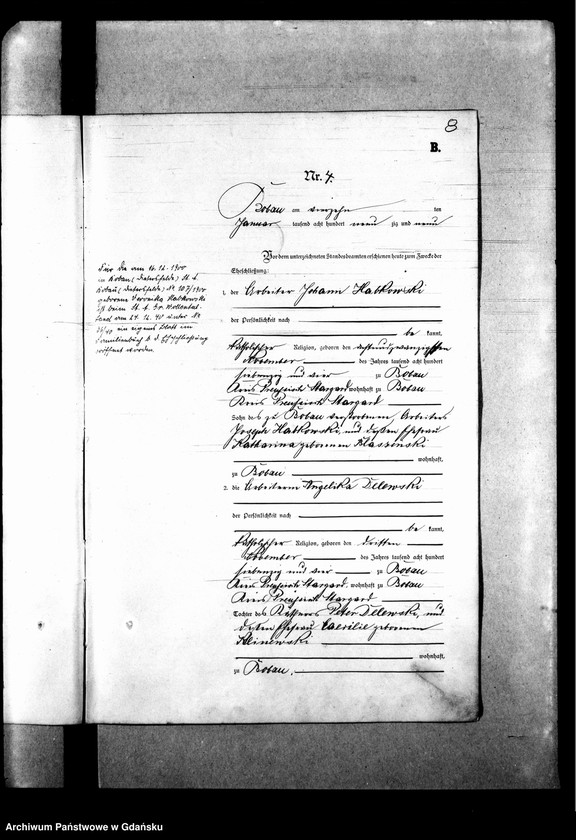 8
B.
Nr. 4.
Bobau am vierzehn ten
Januar tausend acht hundert neun zig und neun
Vor dem unterzeichneten Standesbeamten erschienen heute zum Zwecke der
Eheschließung:
1. der Arbeiter Johann Hatkowski
der Persönlichkeit nach
be kannt,
katholischer Religion, geboren den
November des Jahres tausend acht hundert
siebenzig und vier zu Bobau
Kreis Preußisch Stargard wohnhaft zu Bobau
Kreis Preußisch Stargard
Sohn des zu Bobau verstorbenen Arbeiters
Joseph Hatkowski, und dessen Ehefrau
Katharina geborenen
wohnhaft,
zu Bobau
2. die Arbeiterin Angelika Delewski
der Persönlichkeit nach
be kannt,
katholischer Religion, geboren den dritten
November des Jahres tausend acht hundert
siebenzig und vier zu Bobau
Kreis Preußisch Stargard, wohnhaft zu Bobau
Kreis Preußisch Stargard
Tochter des Peter Delewski, und
dessen Ehefrau geborenen
Klinewski
wohnhaft,
zu Bobau.
Für die am 16.12.1900
in Bobau
geborene Veronika Hatkowski
ist beim St. A.
am 24.12.40 unter Nr
ein eigenes Blatt im
Familienbuch
eröffnet worden
Archiwum Państwowe w Gdańsku